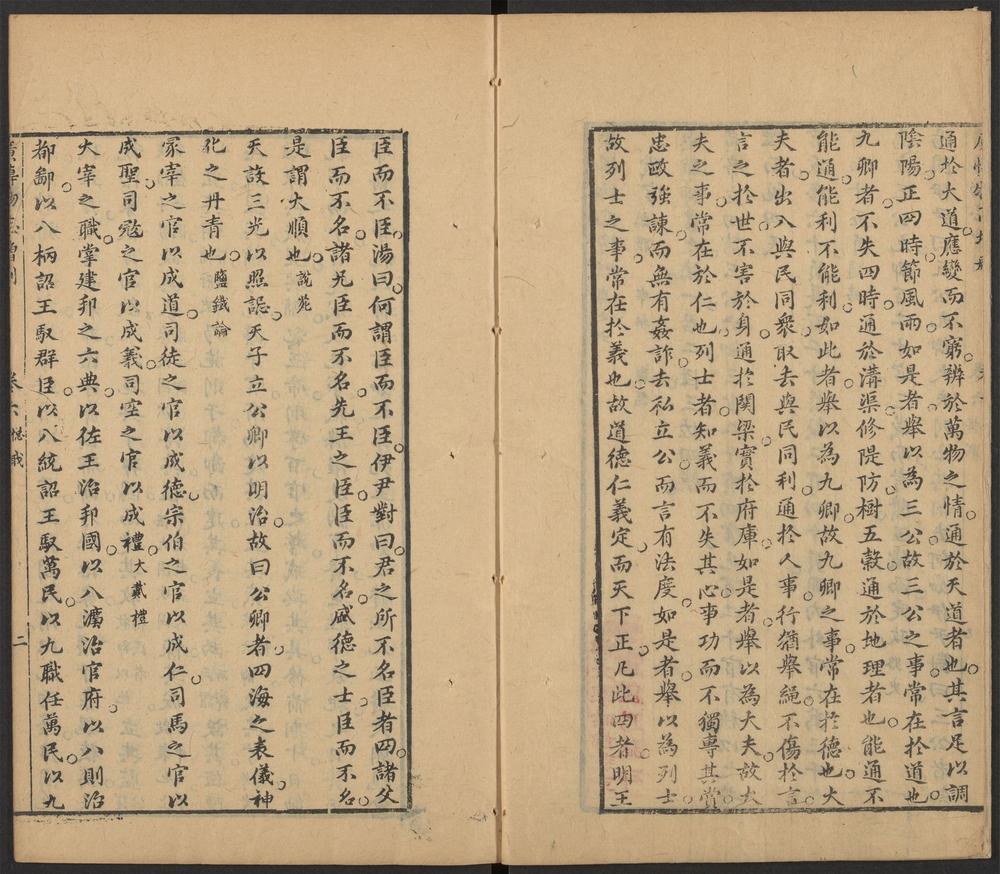 通於大道應變而不窮辨於萬物之情通於天道者也其言足以調
陰陽正四時節風雨如是者舉以為三公故三公之事常在於道也
九卿者不失四時通於溝渠修隄防樹五穀通於地理者也能通不
能通能利不能利如此者舉以為九卿故九卿之事常在於德也大
夫者出入與民同衆取去與民同利通於人事行猶舉繩不傷於言
言之於世不害於身通於関梁實於府庫如是者舉以為大夫故大
夫之事常在於仁也列士者知義而不失其心事功而不獨專其賞
忠政強諫而無有姦詐去私立公而言有法度如是者舉以為列士
故列士之事常在於義也故道德仁義定而天下正凡此四者明王
臣而不臣湯曰何謂臣而不臣伊尹對曰君之所不名臣者四諸父
臣而不名諸兄臣而不名先王之臣臣而不名盛德之士臣而不名
是謂大順也說苑
天設三光以照認天子立公卿以明治故曰公卿者四海之表儀神
化之丹青也鹽鐵論
冢宰之官以成道司徒之官以成德宗伯之官以成仁司馬之官以
成聖司宼之官以成義司空之官以成禮大戴禮
大宰之職掌建邦之六典以佐王治邦國以八灋治官府以八則治
都鄙以八柄詔王馭群臣以八統詔王馭萬民以九職任萬民以九
廣博物志
卷六
二